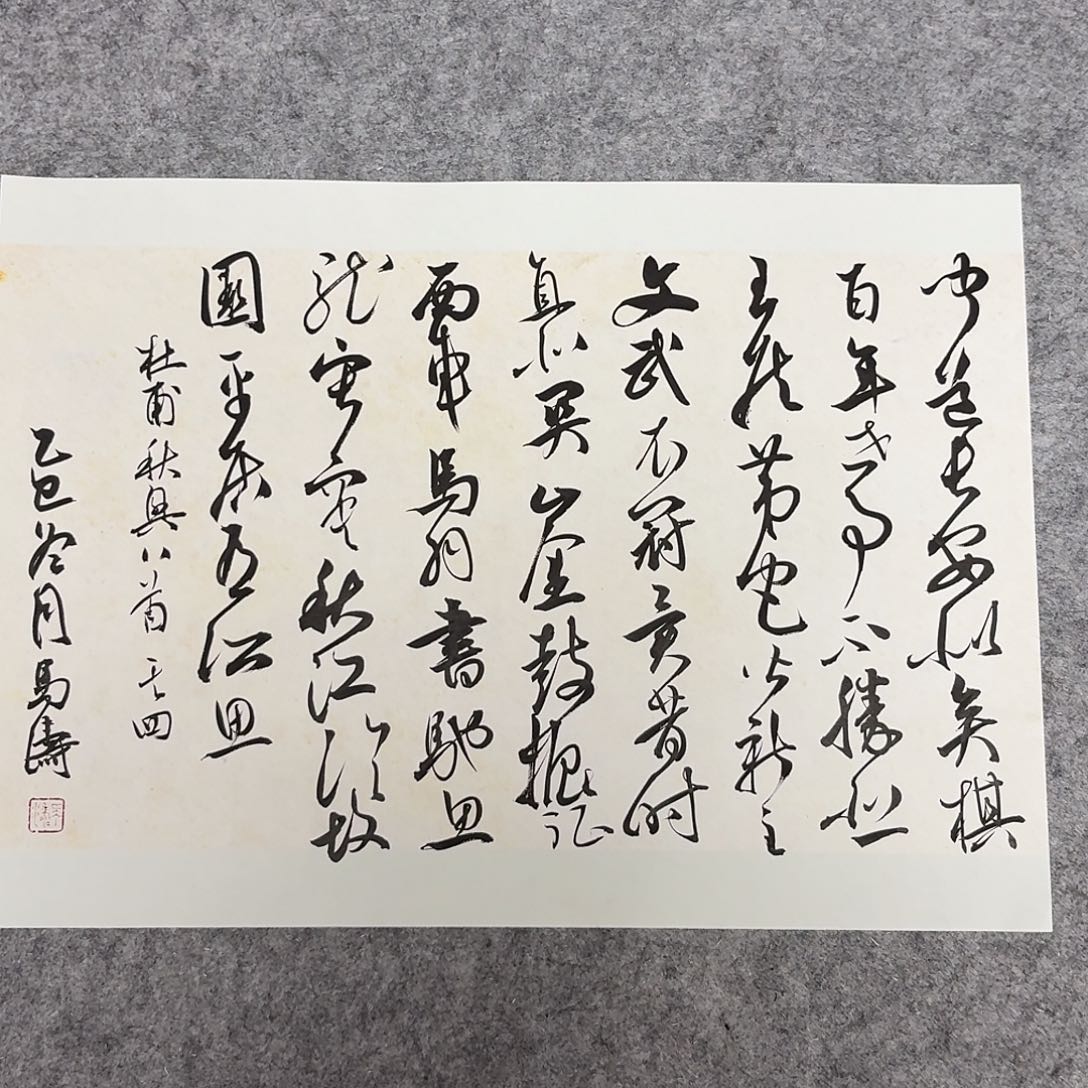 闻道长安似弈棋
百年世事不勝悲
王侯第宅皆新主
文武衣冠異昔时
直北関山金鼓振征
西車馬羽書馳鱼
龙寂寞秋江冷故
國平居有所思
杜甫秋興八首其四
乙巳冬月馬濤